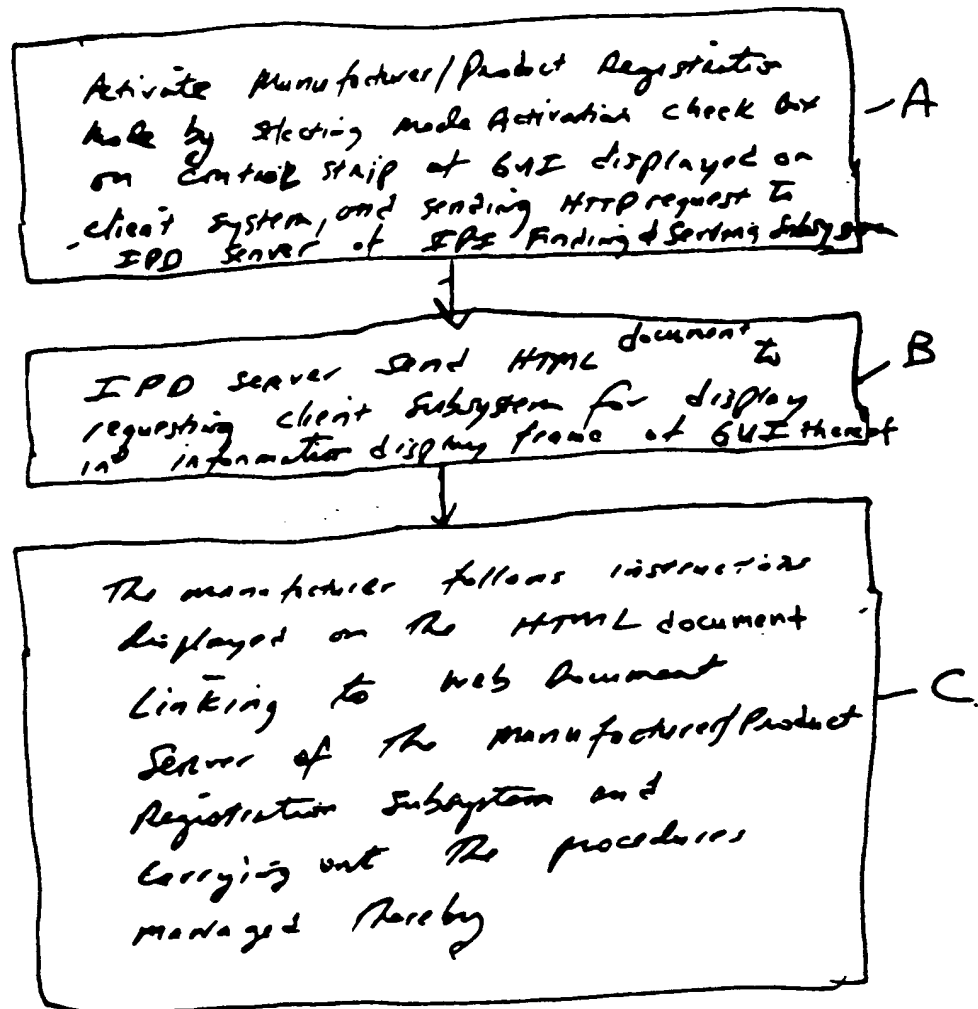 Activate Manufacturer/Product Registration
Mode by selecting mode Activation check box
on control strip of GUI displayed on
client system, and sending HTTP request to
IPD server of IPI Finding & Serving Subsystem
A
IPD server send HTML document to
requesting client subsystem for display
in information display frame of GUI thereof
B
The manufacturer follows instructions
displayed on the HTML document
Linking to web Document
Server of the Manufacturer/Product
Registration Subsystem and
Carrying out the procedures
managed thereby
C